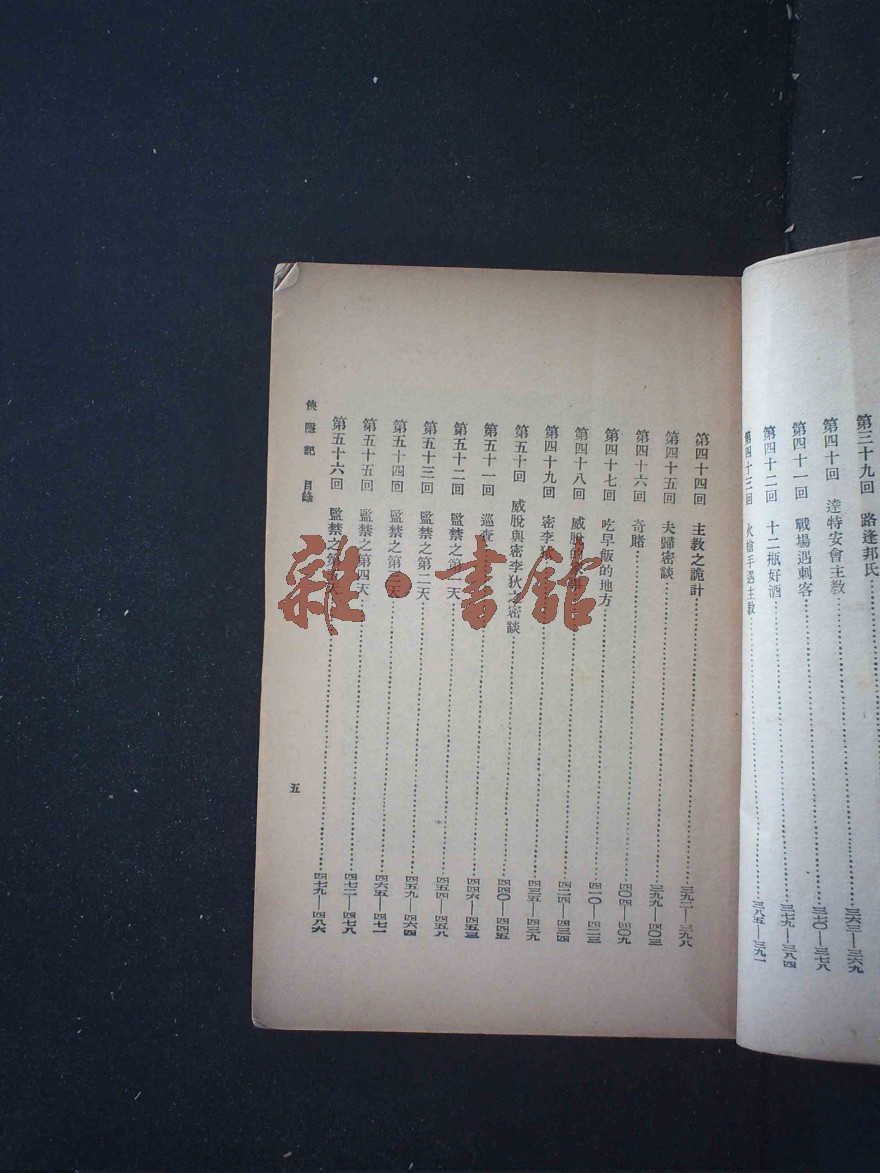 第三十九回 路逢邦氏 三六三—三六九
第四十回 達特安會主教 三七〇—三七八
第四十一回 戰場遇刺客
第四十二回 十二瓶好酒 三七九—三八四
第四十三回 火槍手遇主教 三八五—三九一
第四十四回 主教之詭計 三九二—三九八
第四十五回 夫歸密談 三九九—四〇三
第四十六回 奇賭 四〇四—四〇九
第四十七回 吃早飯的地方 四一〇—四二三
第四十八回 威脫的 四二四—四三四
第四十九回 密李狄 四三五—四三九
第五十回 威脫與密李狄之密談 四四〇—四四五
第五十一回 巡查 四四六—四五三
第五十二回 監禁之第一天 四五四—四五八
第五十三回 監禁之第二天 四五九—四六四
第五十四回 監禁之第三天 四六五—四七一
第五十五回 監禁之第四天 四七二—四七八
第五十六回 監禁之第五天 四七九—四八六
俠隱記 目錄
五
雜·書館